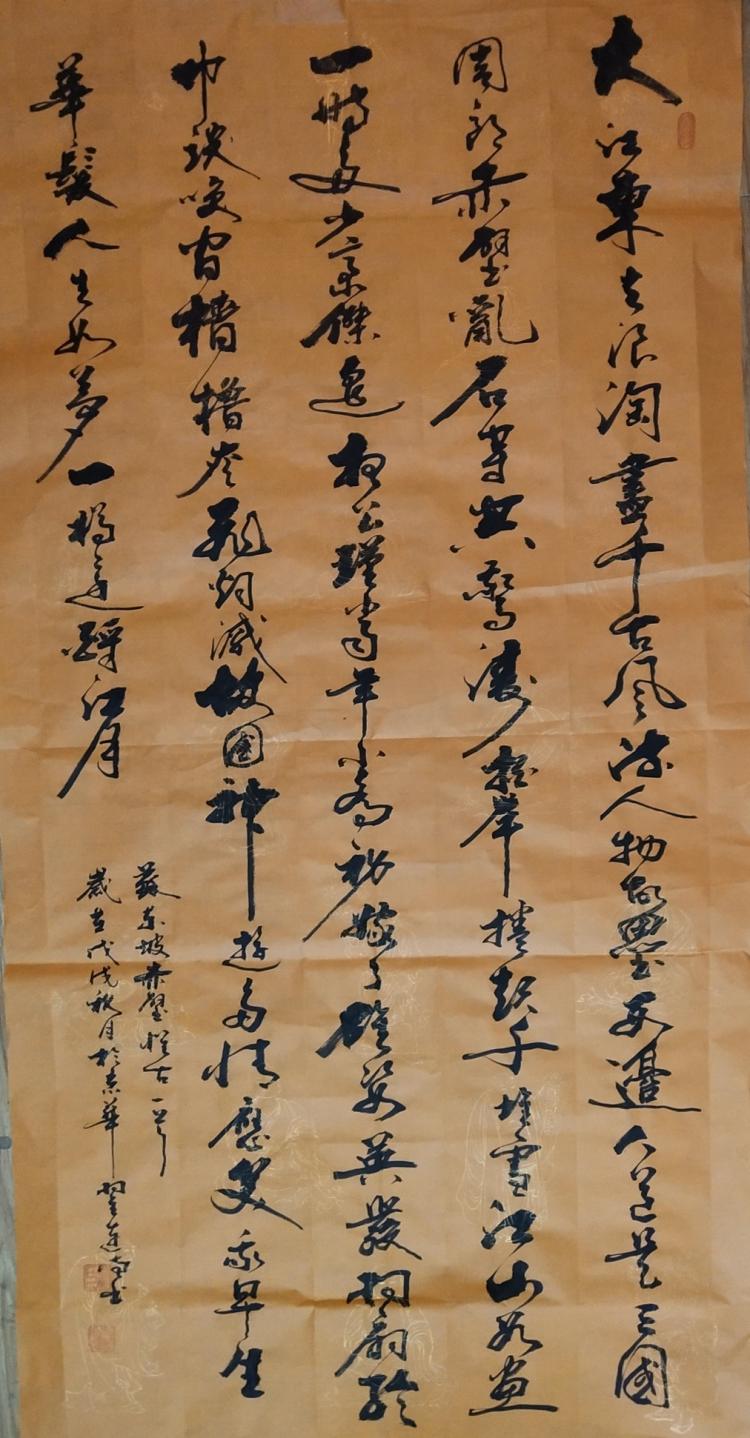 大江東去浪淘盡千古風流人物故壘西邊人道是三國
周郎赤壁亂石穿空驚濤拍岸捲起千堆雪江山如畫
一時多少豪傑遙想公瑾當年小喬初嫁了雄姿英發羽扇綸
巾談笑間檣櫓灰飛煙滅故國神遊多情應笑我早生
華髮人生如夢一樽還酹江月
蘇東坡赤壁懷古一首
歲在戊戌秋月於京華